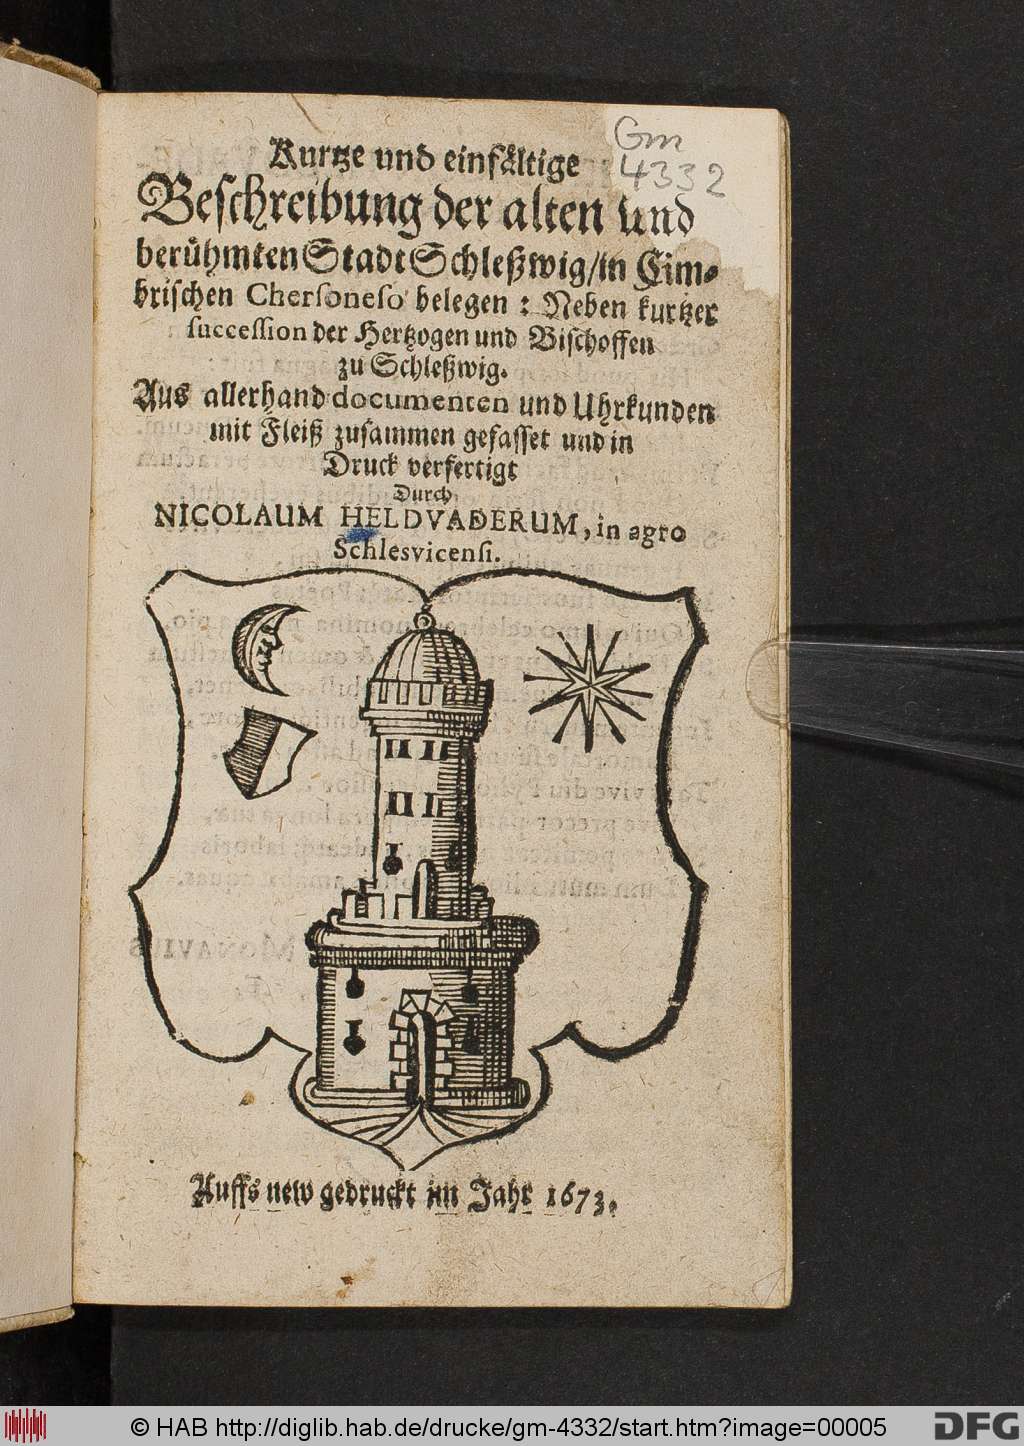 Gm
4332
Kurtze und einfältige
Beschreibung der alten und
berühmten Stadt Schleßwig/in Cim-
brischen Chersoneso belegen: Neben kurtzer
succession der Hertzogen und Bischoffen
zu Schleßwig.
Aus allerhand documenten und Uhrkunden
mit Fleiß zusammen gefasset und in
Druck verfertigt
Durch
NICOLAUM HELDVADERUM, in agro
Schlesvicensi.
Auffs new gedruckt im Jahr 1673.
© HAB http://diglib.hab.de/drucke/gm-4332/start.htm?image=00005
DFG